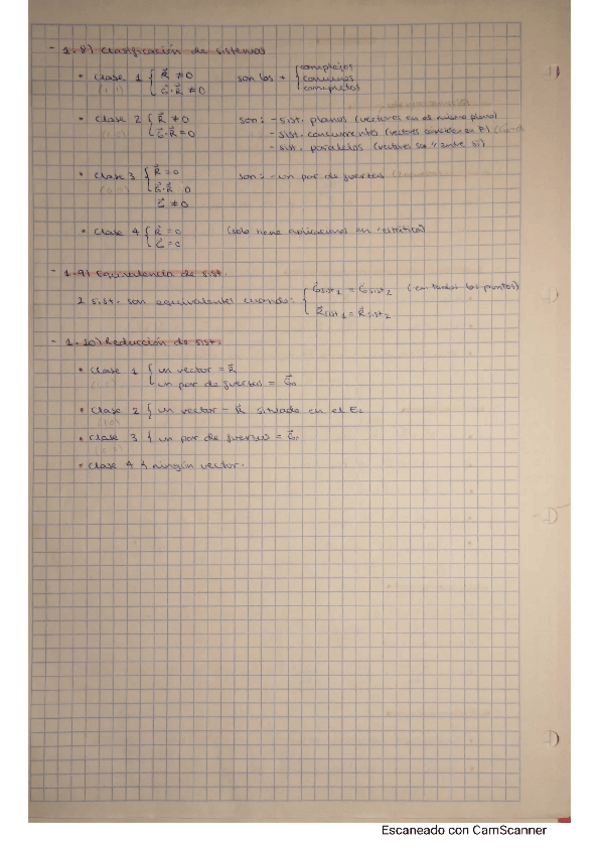 - 1.8) Clasificación de sistemas
• Clase 1 { R⃗ ≠ 0 son los + { complejos
(1,1) G⃗·R⃗ ≠ 0 comunes
completos
• Clase 2 { R⃗ ≠ 0 son: - sist. planos (vectores en el mismo plano)
(1,0) G⃗·R⃗ = 0 - sist. concurrente (vectores coinciden en P)
- sist. paralelos (vectores son // entre sí)
• Clase 3 { R⃗ = 0 son: - un par de fuerzas
(0,0) G⃗·R⃗ 0
G⃗ ≠ 0
• Clase 4 { R⃗ = 0 (solo tiene aplicaciones en estática)
G⃗ = 0
- 1.9) Equivalencia de sist.
2 sist. son equivalentes cuando: { G⃗sist 1 = G⃗sist 2 (en todos los puntos)
R⃗sist 1 = R⃗sist 2
- 1.10) Reducción de sist.
• Clase 1 { un vector = R⃗
un par de fuerzas = G⃗o
• Clase 2 { un vector = R⃗ situado en el E.
• Clase 3 { un par de fuerzas = G⃗o
• Clase 4 { ningún vector.
Escaneado con CamScanner